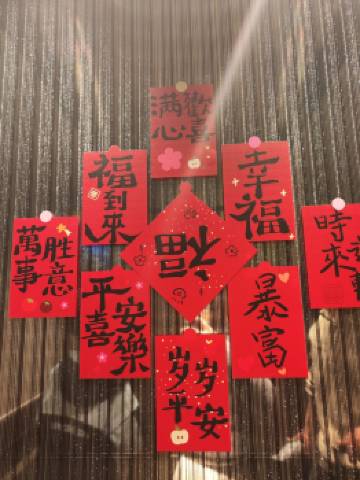 滿心
歡喜
福到來
幸福
萬事
胜意
福
時來
平安
喜樂
暴富
岁岁
平安